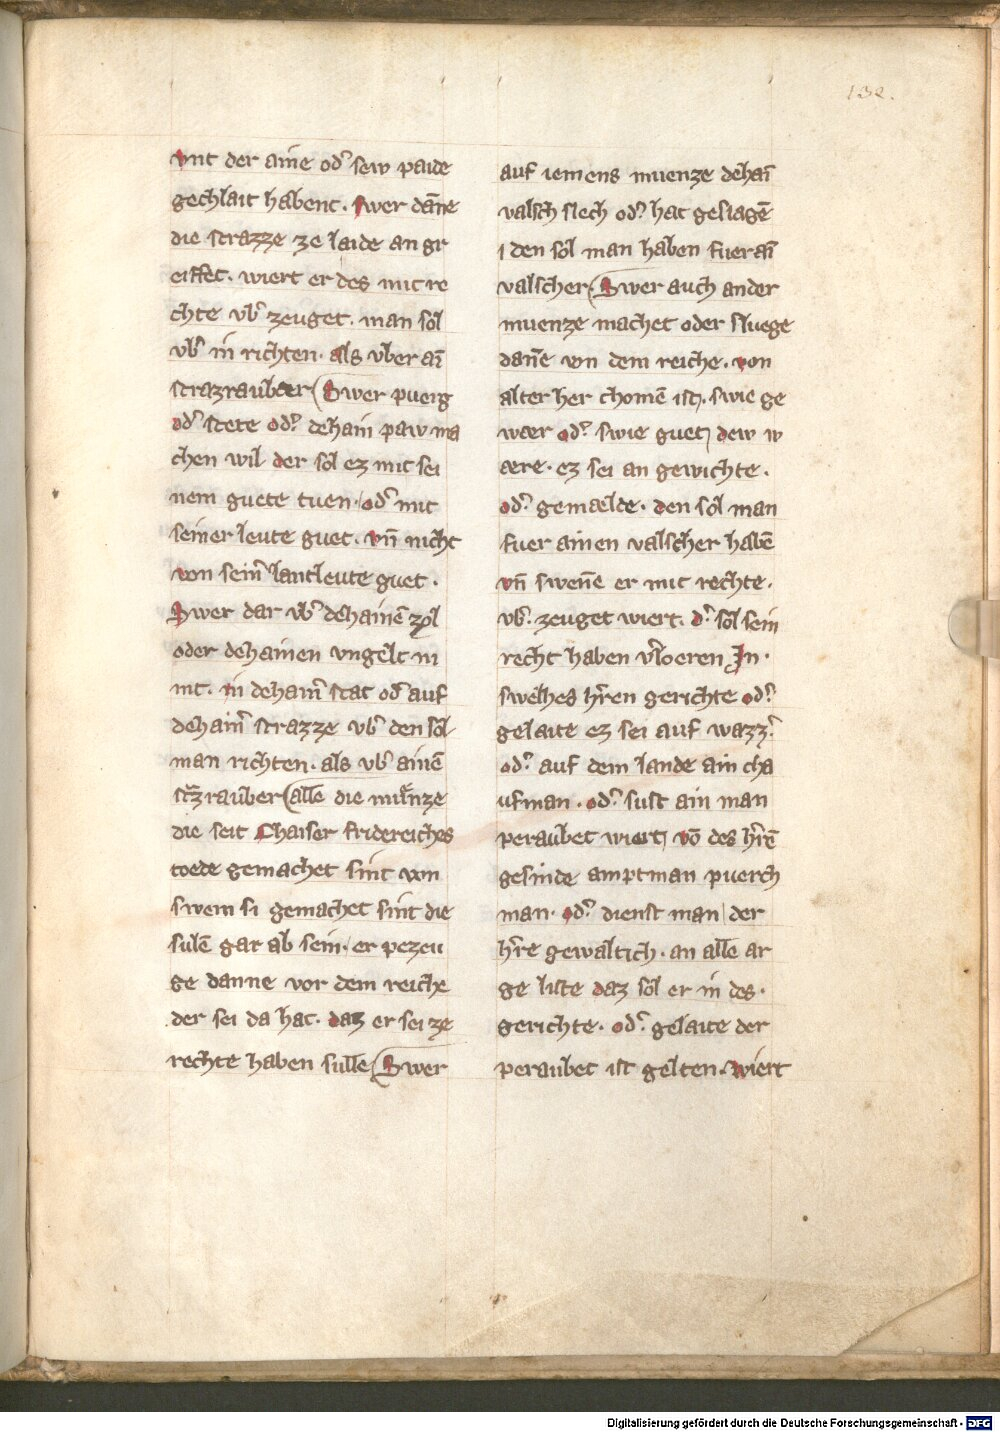 132.
vnt der aine od᾽ sew paide
gechlait habent. Swer dāne
die strazze ze laide an gr
eiffet. wiert er des mit re
chte vb᾽ zeuget. man sol
vb᾽ in richten. als vber aī
strazrauber Swer puerg
od᾽ stete od᾽ dehain paw ma
chen wil der sol ez mit sei
nem guete tuen. od᾽ mit
seiner leute guet. vn̄ nicht
von sein᾽ lantleute guet.
Swer dar vb᾽ dehainē zol
oder dehainen vngelt ni
mt. in dehain᾽ stat od᾽ auf
dehain᾽ strazze vb᾽ den sol
man richten. als vb᾽ ainē
strazrauber alle die muͤnze
die seit Chaiser fridereiches
toede gemachet sint von
swem si gemachet sint die
sulē gar ab sein. er pezeu
ge danne vor dem reiche
der sei da hat. daz er sei ze
rechte haben sulle Swer
auf iemens muenze dehaī
valsch slech od᾽ hat geslagē
den sol man haben fuer aī
valscher. Swer auch ander
muenze machet oder sluege
dane vn dem reiche. von
alter her chomē ist. swie ge
waer od᾽ swie guet dew w
aere. ez sei an gewichte.
od᾽ gemaelde. den sol man
fuer ainen valscher habē
vn̄ swene er mit rechte.
vb᾽ zeuget wiert. d᾽ sol sein
recht haben v᾽loeren Jn.
swelhes h᾽ren gerichte od᾽
gelaite ez sei auf wazz᾽
od᾽ auf dem lande ain cha
ufman. od᾽ sust ain man
peraubet wiert vō des h᾽rē
gesinde amptman puerch
man. od᾽ dienst man der
h᾽re gewaltich. an alle ar
ge liste daz sol er in des.
gerichte. od᾽ gelaite der
peraubet ist gelten. wiert
Digitalisierung gefördert durch die Deutsche Forschungsgemeinschaft - DFG